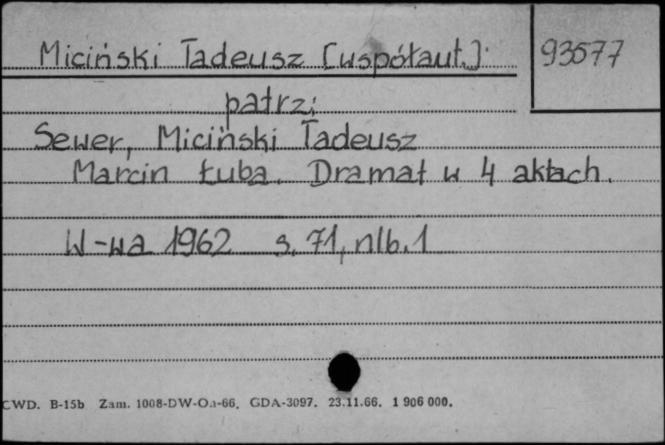 Miciński Tadeusz [współaut.]
93577
patrz:
Sewer, Miciński Tadeusz
Marcin Łuba. Dramat w 4 aktach.
W-wa 1962 s. 71, nlb. 1
CWD. B-15b Zam. 1008-DW-Oa-66. GDA-3097. 23.11.66. 1 906 000.